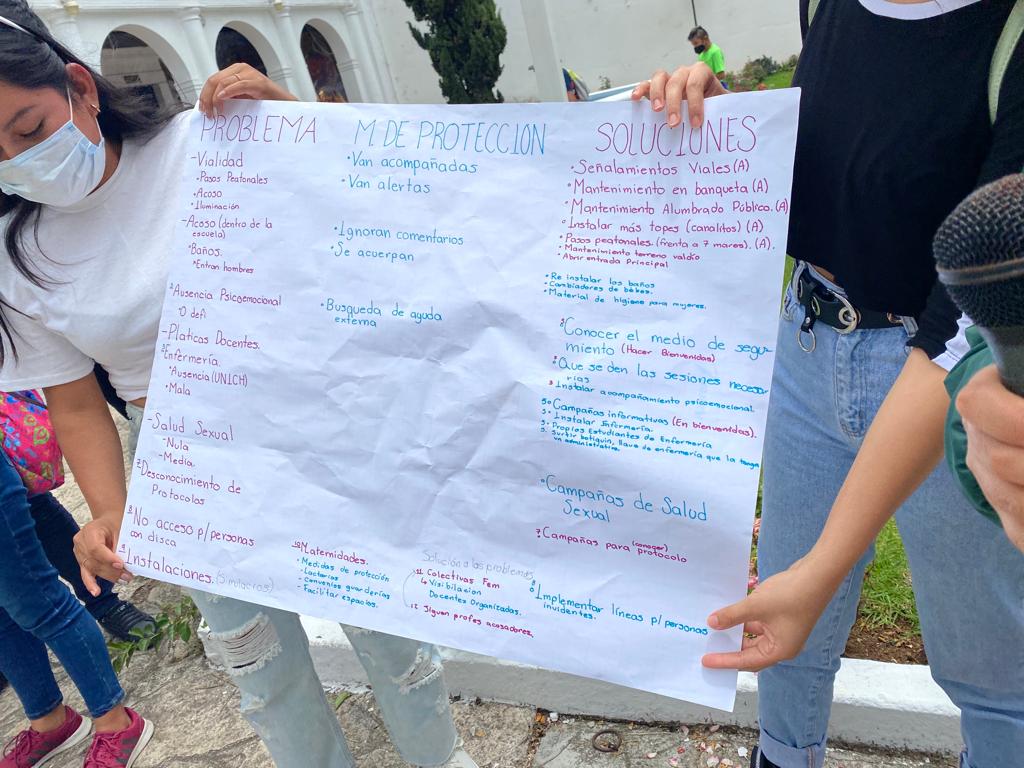 PROBLEMA
-Vialidad
•Pasos Peatonales
•Acoso
•Iluminación
-Acoso (dentro de la
escuela)
•Baños:
*Entran hombres
Ausencia Psicoemocional
-Platicas Docentes.
Enfermería.
•Ausencia (UNICH)
•Mala
-Salud Sexual
-Nula
-Media.
7 Desconocimiento de
Protocolos
8 No acceso p/personas
con disca
9 Instalaciones. (Simulacros)
M DE PROTECCION
•Van acompañadas
•Van alertas
•Ignoran comentarios
•Se acuerpan
•Busqueda de ayuda
externa
10 Maternidades.
•Medidas de protección
•Lactarios
•Convenios guarderías
•Facilitar espacios.
Solución a los problemas
11 Colectivas Fem
Visibilacion
Docentes Organizadas.
12 Siguen profes acosadores.
SOLUCIONES
•Señalamientos Viales (A)
•Mantenimiento en banqueta (A)
•Mantenimiento Alumbrado Público. (A)
•Instalar más topes (canalitos) (A)
•Pasos peatonales (frente a 7 mares). (A).
•Mantenimiento terreno valdío
•Abrir entrada Principal
•Re instalar los baños
•Cambiadores de bebes.
•Material de higiene para mujeres.
Conocer el medio de segui
miento (Hacer Bienvenidas)
Que se den las sesiones necesa
rias
Instalar acompañamiento psicoemocional
Campañas informativas (En bienvenidas).
Instalar Infermería.
Propios Estudiantes de Enfermería
Surtir botiquin, llave de enfermería que la tenga
un administrativo.
•Campañas de Salud
Sexual
(conocer)
7 Campañas para protocolo
8 Implementar líneas p/personas
invidentes.